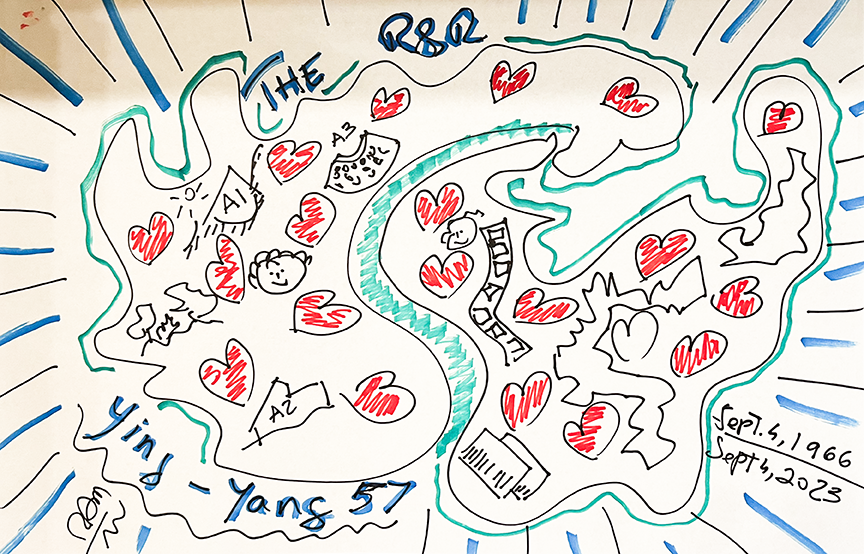 THE R&R
A3
A1
A2
Ying-Yang 57
Sept. 4, 1966
Sept 4, 2023